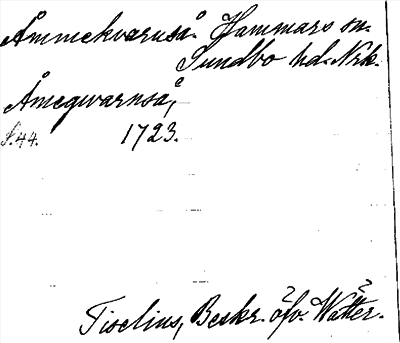 Åmmekvarnså. Hammars sn.
Sundbo hd. Nrk.
Åmeqvarnså,
s. 44. 1723.
Tiselius, Beskr. öfv. Wätter.